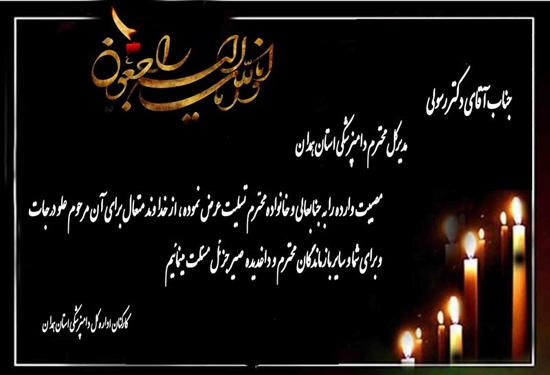 انا لله و انا الیه راجعون
جناب آقای دکتر رسولی
مدیرکل محترم دامپزشکی استان همدان
مصیبت وارده را به جنابعالی و خانواده محترم تسلیت عرض نموده، از خداوند متعال برای آن مرحوم علو درجات
و برای شما و سایر بازماندگان محترم و داغدیده صبر جزیل مسئلت مینمائیم
کارکنان اداره کل دامپزشکی استان همدان